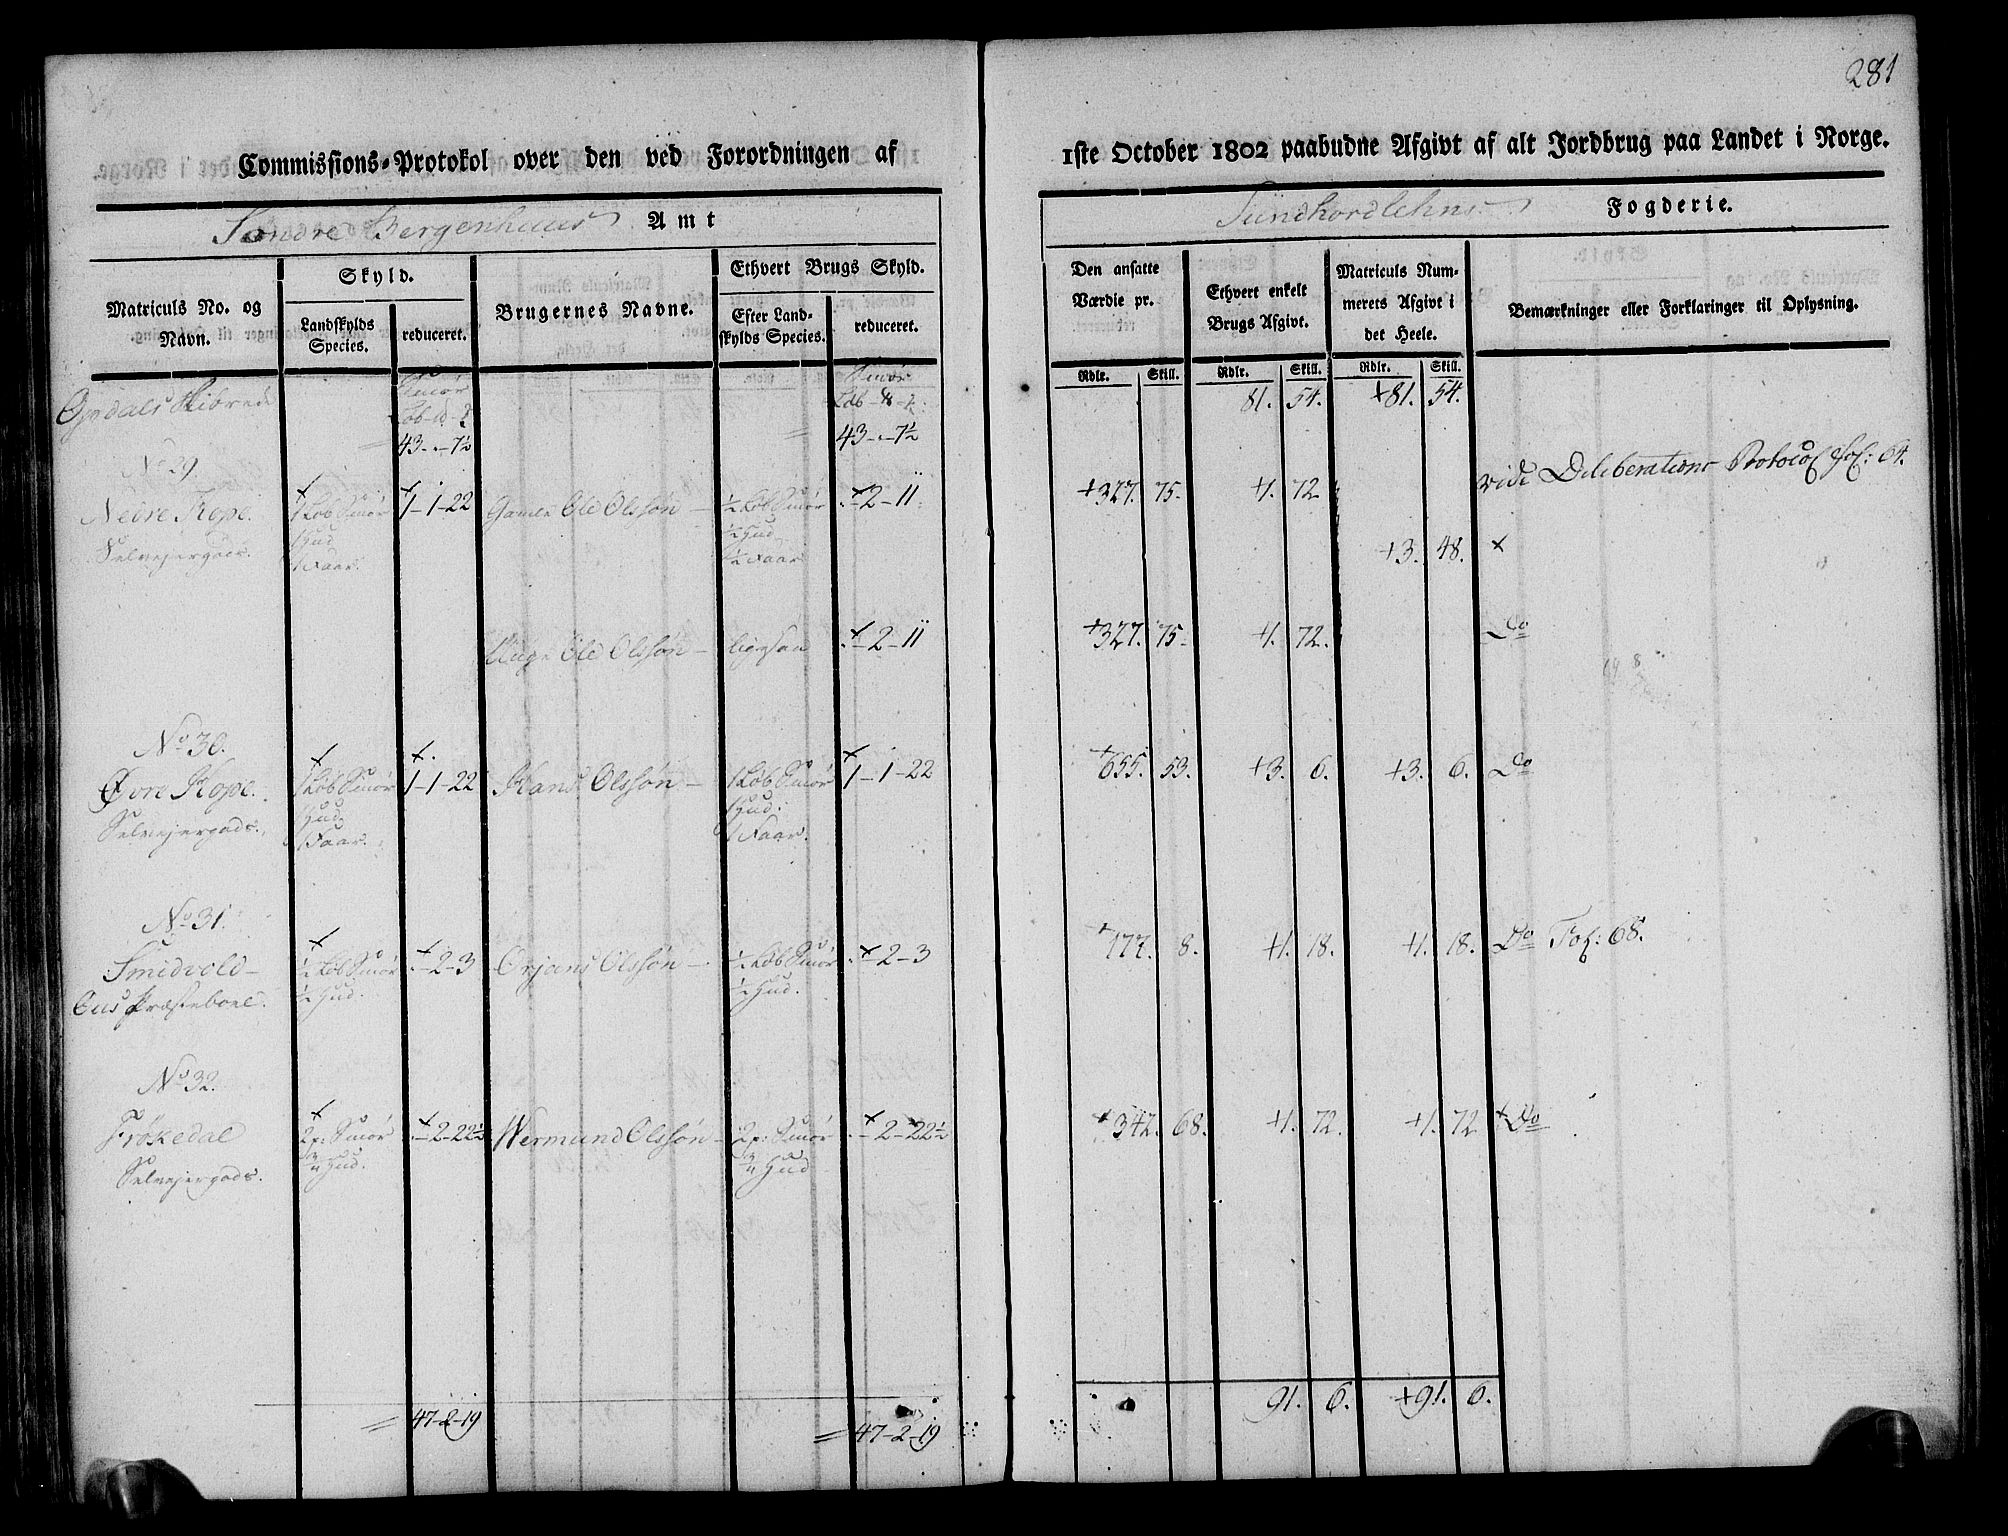 281
Commissions-Protokol over den ved Forordningen af 1ste October 1802 paabudne Afgivt af alt Jordbrug paa Landet i Norge.
Søndre Bergenhuus Amt Sundhordlehns Fogderie.
Matriculs No. og Navn. Skyld. Brugernes Navne. Ethvert Brugs Skyld. Den ansatte Værdie pr. Ethvert enkelt Brugs Afgivt. Matriculs Nummerets Afgivt i det Heele. Bemærkninger eller Forklaringer til Oplysning.
Landskylds Species. reduceret. Efter Landskylds Species. reduceret.
Rdlr. Skill. Rdlr. Skill. Rdlr. Skill.
Opdals Skibrede Smør Smør 81. 54. +81. 54.
43-.-7½ = 43-.-7½
No 29. vide Deliberations Protocol Fol: 64.
Nedre Hope. 1 Løb Smør 1-1-22 Gamle Ole Olssøn - ½ Løb Smør .-2-11 +327. 75. +1. 72.
1 Hud ½ Hud
Selvejergods. 1 Faar. ½ Faar +3. 48. x
Unge Ole Olssøn - ligesaa .-2-11 +327. 75. +1. 72. Do
No 30.
Øvre Hope. 1 Løb Smør 1-1-22 Hans Olssøn - 1 Løb Smør 1-1-22 +655. 53. +3. 6. +3. 6. Do
1 Hud 1 Hud.
Selvejergods. 1 Faar. 1 Faar.
No 31.
Smidvold - ½ Løb Smør .-2-3 Ørjans Olssøn - ½ Løb Smør .-2-3 +177. 8. +1. 18. +1. 18. Do Fol: 68.
Ous Præsteboel. ½ Hud. ½ Hud.
No 32.
Frøkedal 2 p: Smør .-2-22½ Wermund Olssøn - 2 p: Smør .-2-22½ +342. 68. +1. 72. +1. 72 x Do
Selvejergods. Hud. Hud
91. 6. +91. 6.
= 47-2-19 = 47-2-19